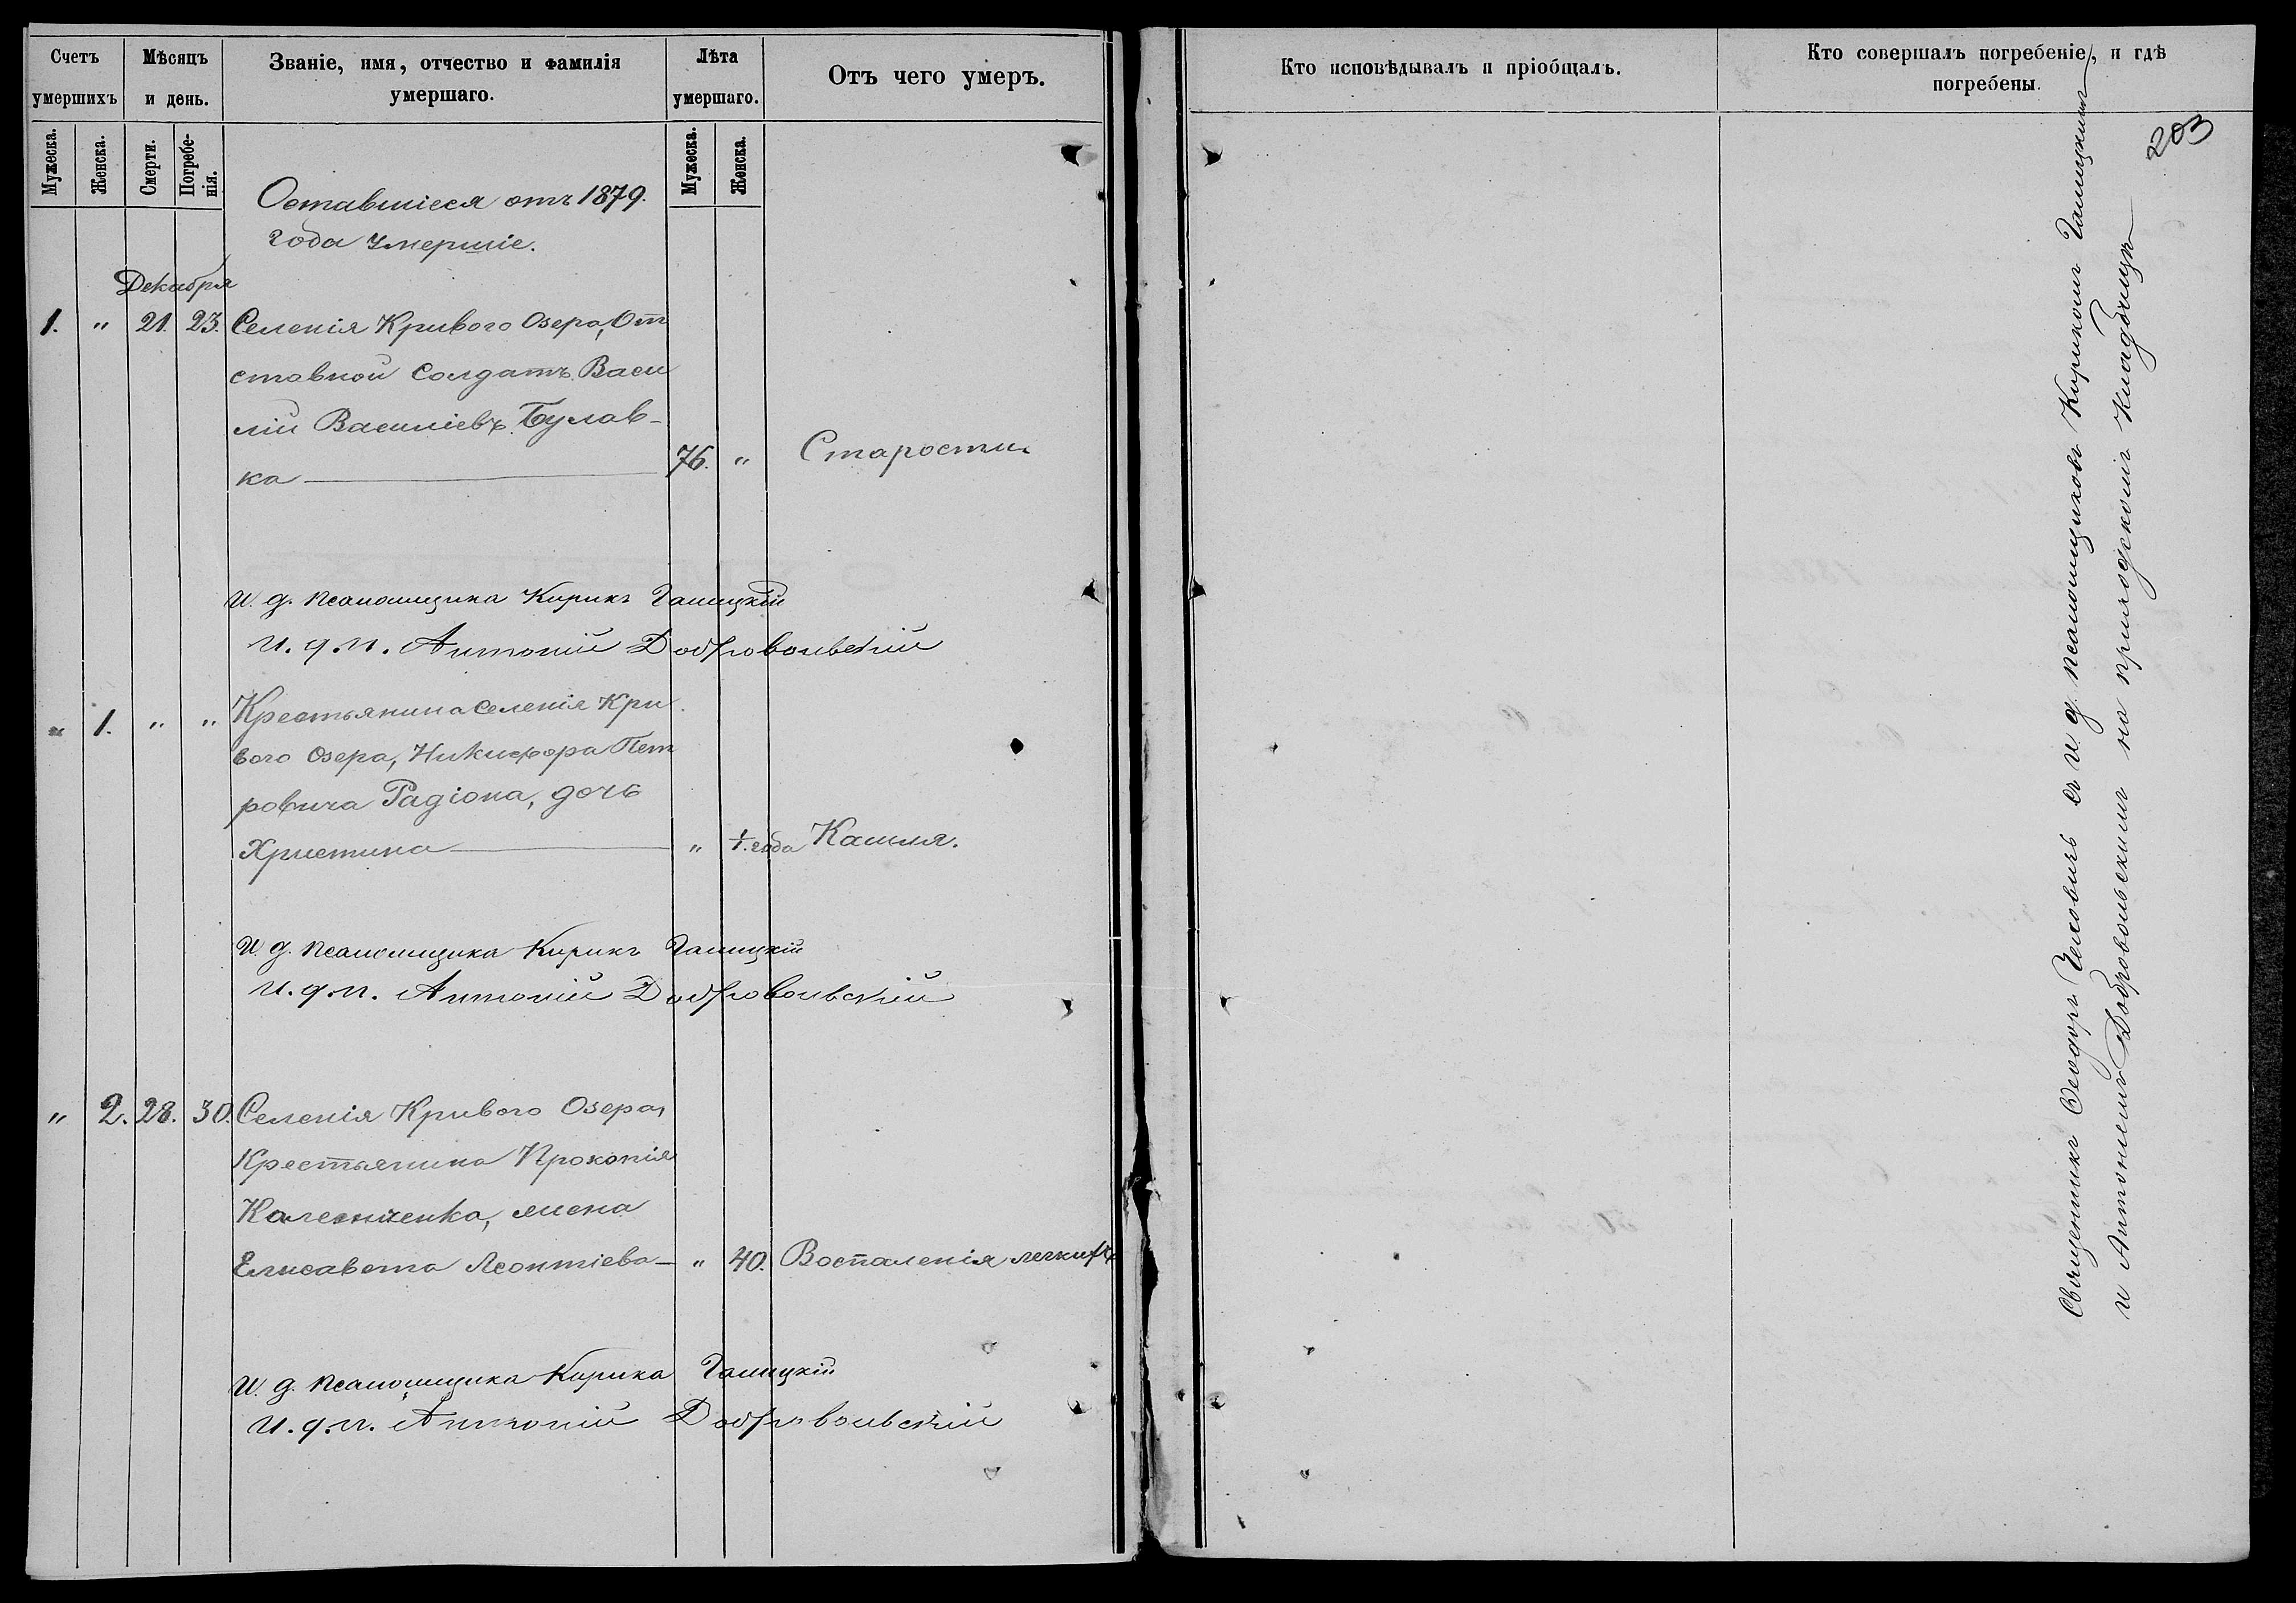 Счетъ умершихъ
Мѣсяцъ и день.
Званіе, имя, отчество и фамилія
умершаго.
Лѣта умершаго.
Отъ чего умеръ.
Кто исповѣдывалъ и пріобщалъ.
Кто совершалъ погребеніе, и гдѣ
погребены.
Мужеска.
Женска.
Смерти.
Погребе-
нія.
Мужеска.
Женска.
203
Оставшіеся отъ 1879.
года умершіе.
Декабря
1. " 21. 23. Селенія Криваго Озера, От
ставной Солдатъ Васи
лій Василіевъ Булав-
ка 76. " Старости
И. д. псаломщика Кирикъ Галицкій
И. д. п. Антоній Добровольскій
" 1. " " Крестьянина селенія Кри
вого Озера, Никифора Пет
ровича Радіона, дочь
Христина " 1. года Кашля.
И. д. псаломщика Кирикъ Галицкій
И. д. п. Антоній Добровольскій
" 2. 28. 30. Селенія Криваго Озера,
Крестьянина Прокопія
жена
Елисавета Леонтіева " 40. Воспаленія легкихъ
И. д. псаломщика Кирикъ Галицкій
И. д. п. Антоній Добровольскій
Священникъ Ѳеодоръ съ и д псаломщиковъ Кирикомъ Галицкимъ
и Антоніемъ Добровольскимъ на приходскомъ Кладбищѣ